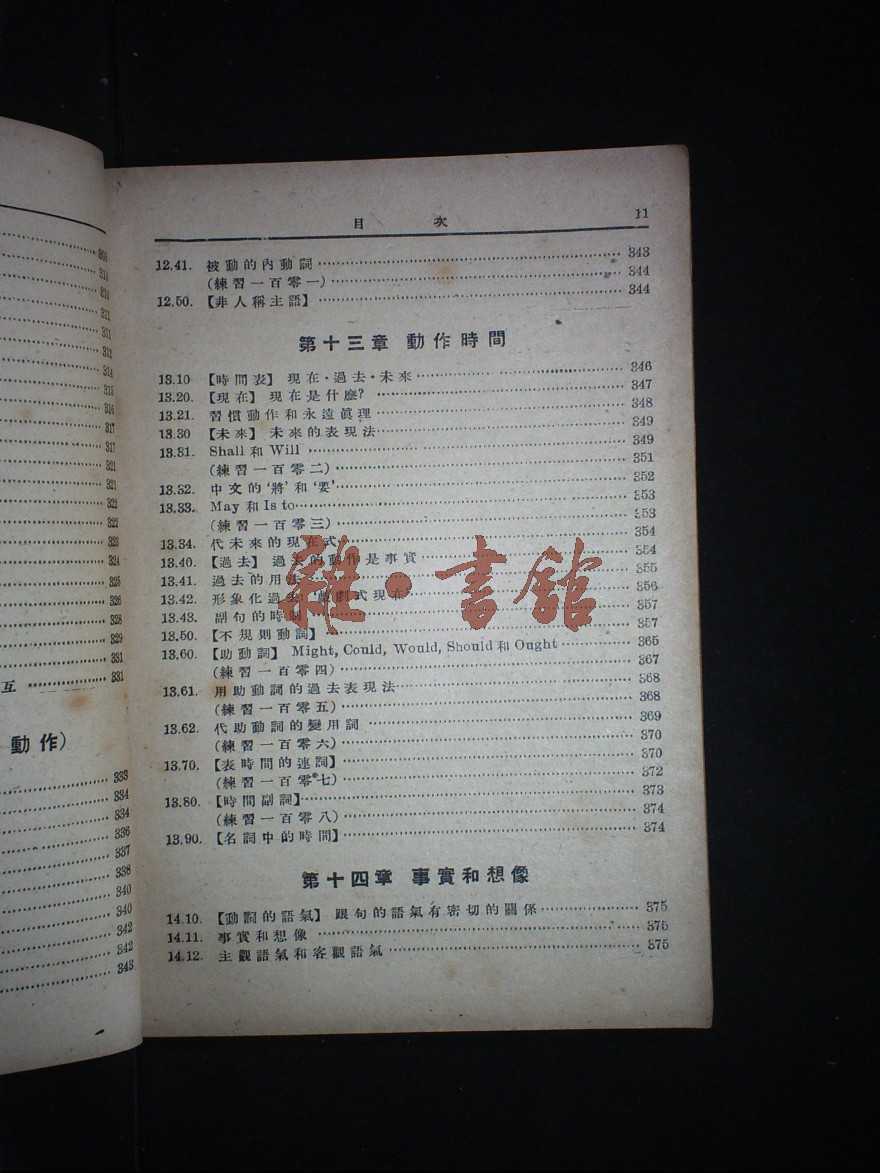 300
310
310
311
311
312
314
315
316
317
317
321
321
322
322
323
324
325
326
328
329
331
互 331
動作)
333
334
334
336
337
338
340
340
342
342
343
目 次 11
12.41. 被動的內動詞 343
(練習一百零一) 344
12.50. 【非人稱主語】 344
第十三章 動作時間
13.10 【時間表】 現在·過去·未來 346
13.20. 【現在】 現在是什麼? 347
13.21. 習慣動作和永遠眞理 348
13.30 【未來】 未來的表現法 349
13.31. Shall 和 Will 349
(練習一百零二) 351
13.32. 中文的‘將’和‘要’ 352
13.33. May 和 Is to 353
(練習一百零三) 353
13.34. 代未來的現在式 354
13.40. 【過去】 過去的動作是事實 354
13.41. 過去的用法 355
13.42. 形象化過去 戲劇式現在 356
13.43. 副句的時制 357
13.50. 【不規則動詞】 357
13.60. 【助動詞】 Might, Could, Would, Should 和 Ought 365
(練習一百零四) 367
13.61. 用助動詞的過去表現法 368
(練習一百零五) 368
13.62. 代助動詞的變用詞 369
(練習一百零六) 370
13.70. 【表時間的連詞】 370
(練習一百零七) 372
13.80. 【時間副詞】 373
(練習一百零八) 374
13.90. 【名詞中的時間】 374
第十四章 事實和想像
14.10. 【動詞的語氣】 跟句的語氣有密切的關係 375
14.11. 事實和想像 375
14.12. 主觀語氣和客觀語氣 375
雜·書館